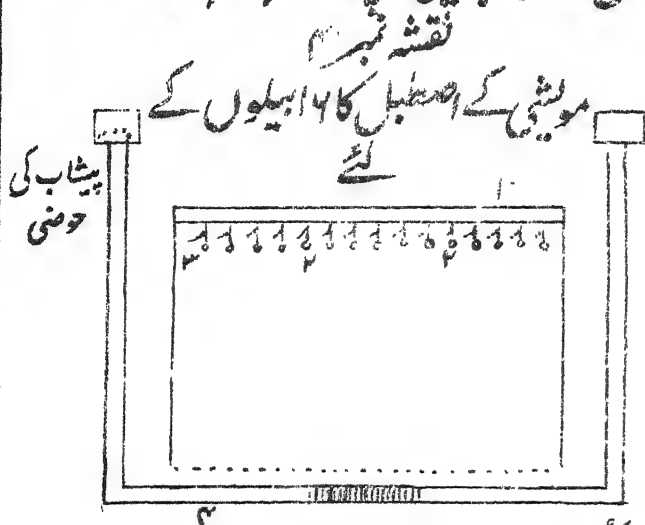 نقشہ نمبر ۳
مویشی کے اصطبل کا ۱۶ بیلوں کے
لئے
پیشاب کی
حوضی
۱
۳ ۳ ۳
۴